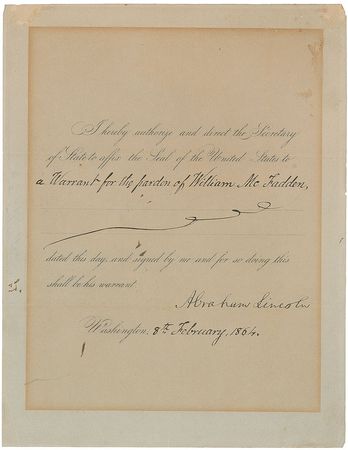 I hereby authorize and direct the Secretary
of State to affix the Seal of the United States to
a Warrant for the pardon of William McFadden,
dated this day, and signed by me and for so doing this
shall be his warrant.
Abraham Lincoln
Washington, 8th February, 1864.